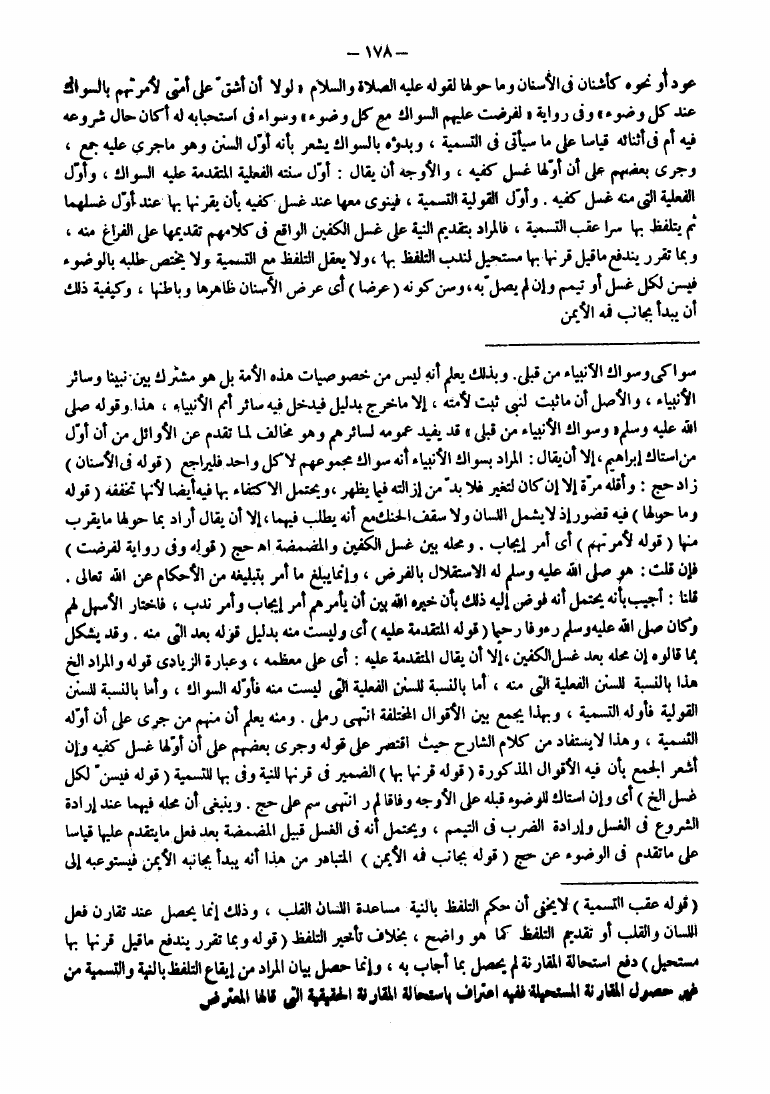 – ١٧٨ –
عود أو نحوه كأشنان فى الأسنان وما حولها لقوله عليه الصلاة والسلام « لولا أن أشقّ على أمتى لأمرتهم بالسواك
عند كل وضوء » وفى رواية « لفرضت عليهم السواك مع كل وضوء » وسواء فى استحبابه له أكان حال شروعه
فيه أم فى أثنائه قياسا على ما سيأتى فى التسمية ، وبدؤه بالسواك يشعر بأنه أوّل السنن وهو ماجرى عليه جمع ،
وجرى بعضهم على أن أوّلها غسل كفيه ، والأوجه أن يقال : أوّل سننه الفعلية المتقدمة عليه السواك ، وأوّل
الفعلية التى منه غسل كفيه . وأوّل القولية التسمية ، فينوى معها عند غسل كفيه بأن يقرنها بها عند أوّل غسلهما
ثم يتلفظ بها سرا عقب التسمية ، فالمراد بتقديم النية على غسل الكفين الواقع فى كلامهم تقديمها على الفراغ منه ،
وبما تقرر يندفع ماقيل قرنها بها مستحيل لندب التلفظ بها ، ولا يعقل التلفظ مع التسمية ولا يختص طلبه بالوضوء
فيسن لكل غسل أو تيمم وإن لم يصل به، وسن كونه ( عرضا ) أى عرض الأسنان ظاهرها وباطنها ، وكيفية ذلك
أن يبدأ بجانب فمه الأيمن
سواكى وسواك الأنبياء من قبلى. وبذلك يعلم أنه ليس من خصوصيات هذه الأمة بل هو مشترك بين نبينا وسائر
الأنبياء ، والأصل أن ماثبت لنبى ثبت لأمته ، إلا ماخرج بدليل فيدخل فيه سائر أمم الأنبياء ، هذا. وقوله صلى
الله عليه وسلم « وسواك الأنبياء من قبلى » قد يفيد عمومه لسائرهم وهو مخالف لما تقدم عن الأوائل من أن أوّل
من استاك إبراهيم ، إلا أن يقال : المراد بسواك الأنبياء أنه سواك مجموعهم لاكل واحد فليراجع ( قوله فى الأسنان )
زاد حج : وأقله مرّة إلا إن كان لتغير فلا بدّ من إزالته فيما يظهر ، ويحتمل الاكتفاء بها فيه أيضا لأنها تخففه ( قوله
وما حولها ) فيه قصور إذ لايشمل اللسان ولا سقف الحنك مع أنه يطلب فيهما، إلا أن يقال أراد بما حولها مايقرب
منها ( قوله لأمرتهم ) أى أمر إيجاب . ومحله بين غسل الكفين والمضمضة اه حج ( قوله وفى رواية لفرضت )
فإن قلت : هو صلى الله عليه وسلم له الاستقلال بالفرض ، وإنما يبلغ ما أمر بتبليغه من الأحكام عن الله تعالى .
قلنا : أجيب بأنه يحتمل أنه فوض إليه ذلك بأن خيره الله بين أن يأمرهم أمر إيجاب وأمر ندب ، فاختار الأسهل لهم
وكان صلى الله عليه وسلم رءوفا رحيما ( قوله المتقدمة عليه ) أى وليست منه بدليل قوله بعد التى منه . وقد يشكل
بما قالوه إن محله بعد غسل الكفين ، إلا أن يقال المتقدمة عليه : أى على معظمه ، وعبارة الزيادى قوله والمراد الخ
هذا بالنسبة للسنن الفعلية التى منه ، أما بالنسبة للسنن الفعلية التى ليست منه فأوّله السواك ، وأما بالنسبة للسنن
القولية فأوله التسمية ، وبهذا يجمع بين الأقوال المختلفة انتهى رملى . ومنه يعلم أن منهم من جرى على أن أوّله
التسمية ، وهذا لايستفاد من كلام الشارح حيث اقتصر على قوله وجرى بعضهم على أن أوّلها غسل كفيه وإن
أشعر الجمع بأن فيه الأقوال المذكورة ( قوله قرنها بها ) الضمير فى قرنها للنية وفى بها للتسمية ( قوله فيسنّ لكل
غسل الخ ) أى وإن استاك للوضوء قبله على الأوجه وفاقا لم ر انتهى سم على حج . وينبغى أن محله فيهما عند إرادة
الشروع فى الغسل وإرادة الضرب فى التيمم ، ويحتمل أنه فى الغسل قبيل المضمضة بعد فعل مايتقدم عليها قياسا
على ماتقدم فى الوضوء عن حج ( قوله بجانب فمه الأيمن ) المتبادر من هذا أنه يبدأ بجانبه الأيمن فيستوعبه إلى
( قوله عقب التسمية ) لايخفى أن حكم التلفظ بالنية مساعدة اللسان القلب ، وذلك إنما يحصل عند تقارن فعل
اللسان والقلب أو تقديم التلفظ كما هو واضح ، بخلاف تأخير التلفظ ( قوله وبما تقرر يندفع ماقيل قرنها بها
مستحيل ) دفع استحالة المقارنة لم يحصل بما أجاب به ، وإنما حصل بيان المراد من إيقاع التلفظ بالنية والتسمية من
غير حصول المقارنة المستحيلة ففيه اعتراف باستحالة المقارنة الحقيقية التى قالها المعترض